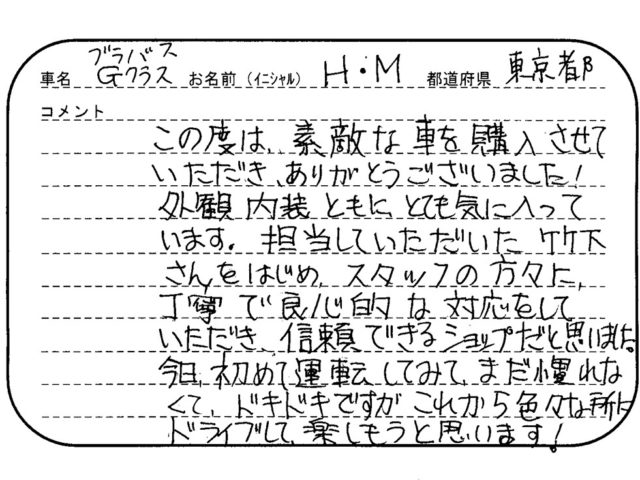 ブラバス
車名 Gクラス お名前（ｲﾆｼｬﾙ） H・M 都道府県 東京都
コメント
この度は、素敵な車を購入させて
いただき、ありがとうございました！
外観内装ともに、とても気に入って
います。担当していただいた竹下
さんをはじめ、スタッフの方々に、
丁寧で良心的な対応をして
いただき、信頼できるショップだと思いました。
今日、初めて運転してみて、まだ慣れな
くて、ドキドキですが これから色々な所に
ドライブして、楽しもうと思います！